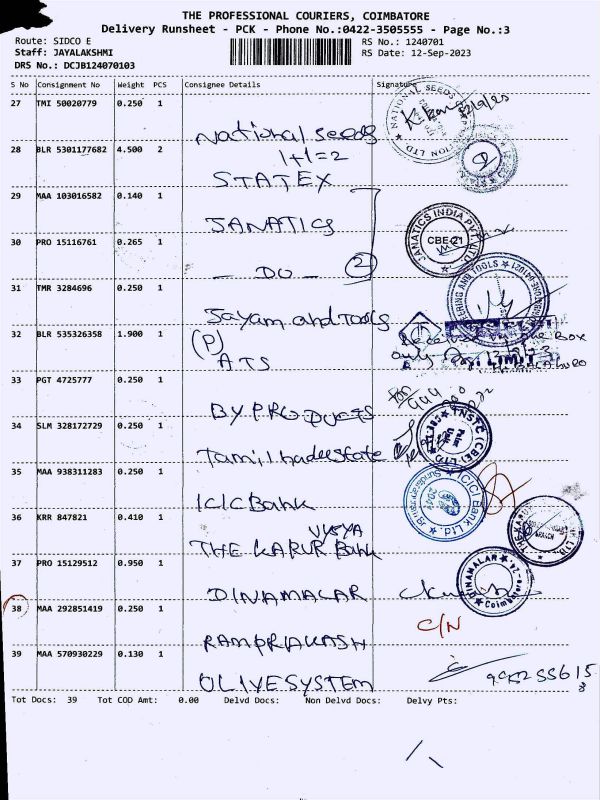 THE PROFESSIONAL COURIERS, COIMBATORE
Delivery Runsheet - PCK - Phone No.:0422-3505555 - Page No.:3
Route: SIDCO E
RS No.: 1240701
Staff: JAYALAKSHMI
RS Date: 12-Sep-2023
DRS No.: DCJB124070103
S No Consignment No Weight PCS Consignee Details Signature
27 TMI 50020779 0.250 1 National Seeds
28 BLR 5301177682 4.500 2 1+1=2
STATEX
29 MAA 103016582 0.140 1 JANATICS
30 PRO 15116761 0.265 1 - DO - 2
31 TMR 3284696 0.250 1 Jayam and Tools
32 BLR 535326358 1.900 1 (P)
ATS
33 PGT 4725777 0.250 1 BY PRODUCTS
34 SLM 328172729 0.250 1 Tamil nadu state
35 MAA 938311283 0.250 1 ICIC Bank
36 KRR 847821 0.410 1 VYSYA
THE KARUR Bank
37 PRO 15129512 0.950 1 DINAMALAR
38 MAA 292851419 0.250 1 RAMPRAKASH C/N
39 MAA 570930229 0.130 1 OLIVE SYSTEM
NATIONAL SEEDS
JANATICS INDIA PVT. LTD.
CBE-21
AND TOOLS
LIMIT
TNSTC (CBE) LTD
ICICI Bank Ltd.
DINAMALAR
Coimbatore
Tot Docs: 39 Tot COD Amt: 0.00 Delvd Docs: Non Delvd Docs: Delvy Pts: